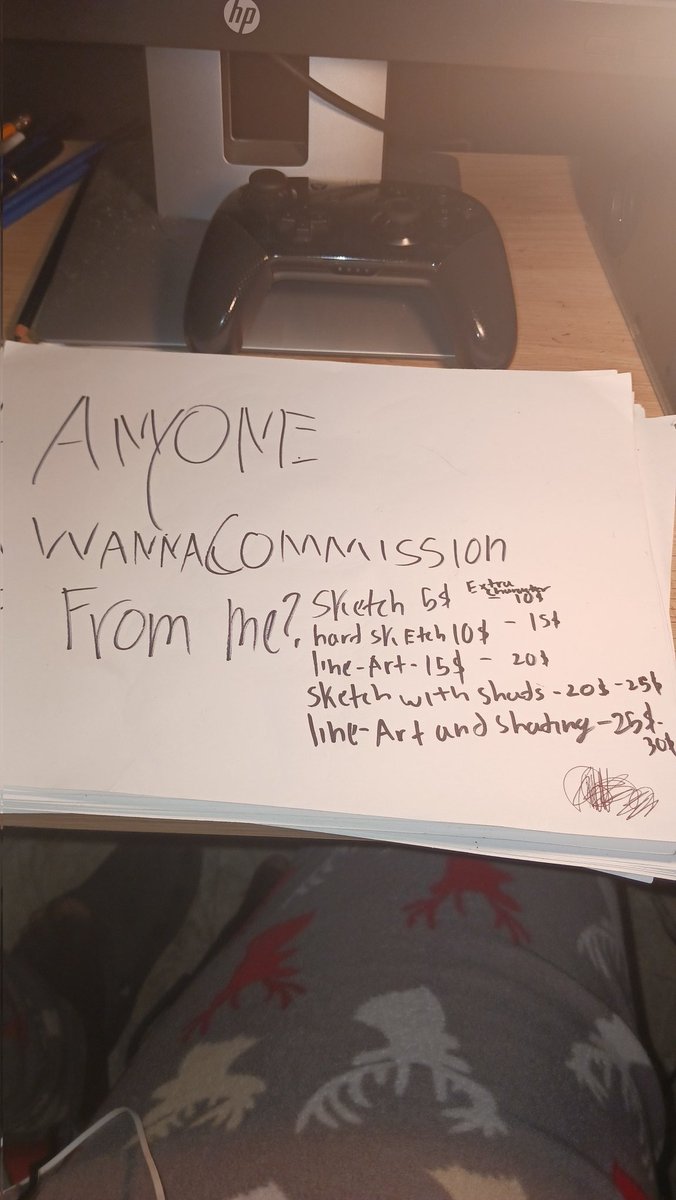 hp
ANYONE
WANNA COMMISSION
From me?
Sketch 5$ Extra Character 10$
hard sketch 10$ - 15$
line-Art-15$ - 20$
Sketch with shads-20$-25$
line-Art and Shating-25$-
30$